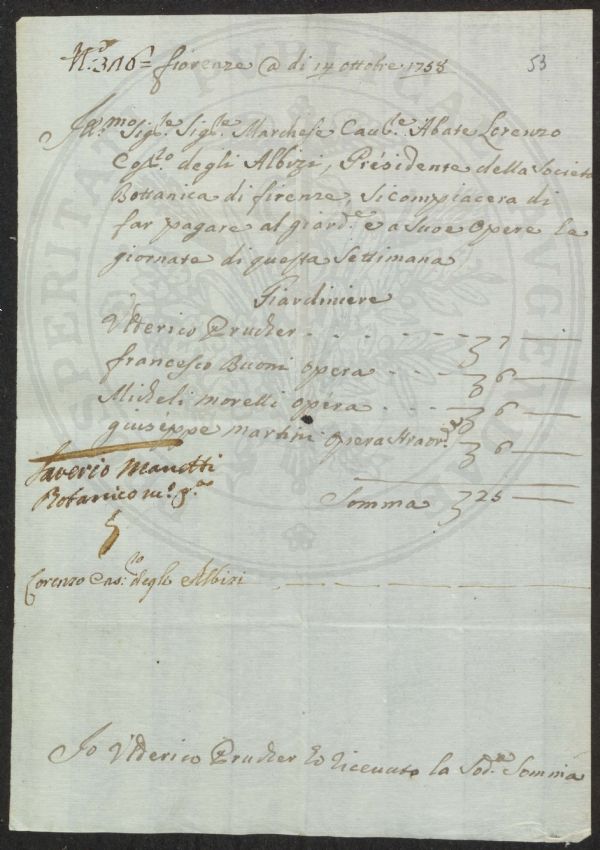 N.º 316= fiorenze @ di 14 ottobre 1758
53
Sig.re Sig.re Marchese Cav.re Abate Lorenzo
Cos.to degli Albizi, Présidente della Societa
Bottanica di firenze, Si compiacera di
far pagare al giard.e e a Suoe Opere le
giornate di questa Settimana
Giardiniere
Ulderico Prucker - - - - - 7 —
francesco Buoni opera - - - - 6 —
Micheli morelli opera - - - 6 —
giuseppe martini opera straor.ª 6 —
Saverio Manetti
Botanico
Somma 25 —
Lorenzo Cas.to degli Albizi
Io Ulderico Prucker ho ricevuto la Sod.ª Somma
PUBLICA
PROSPERITATI AUGENDAE